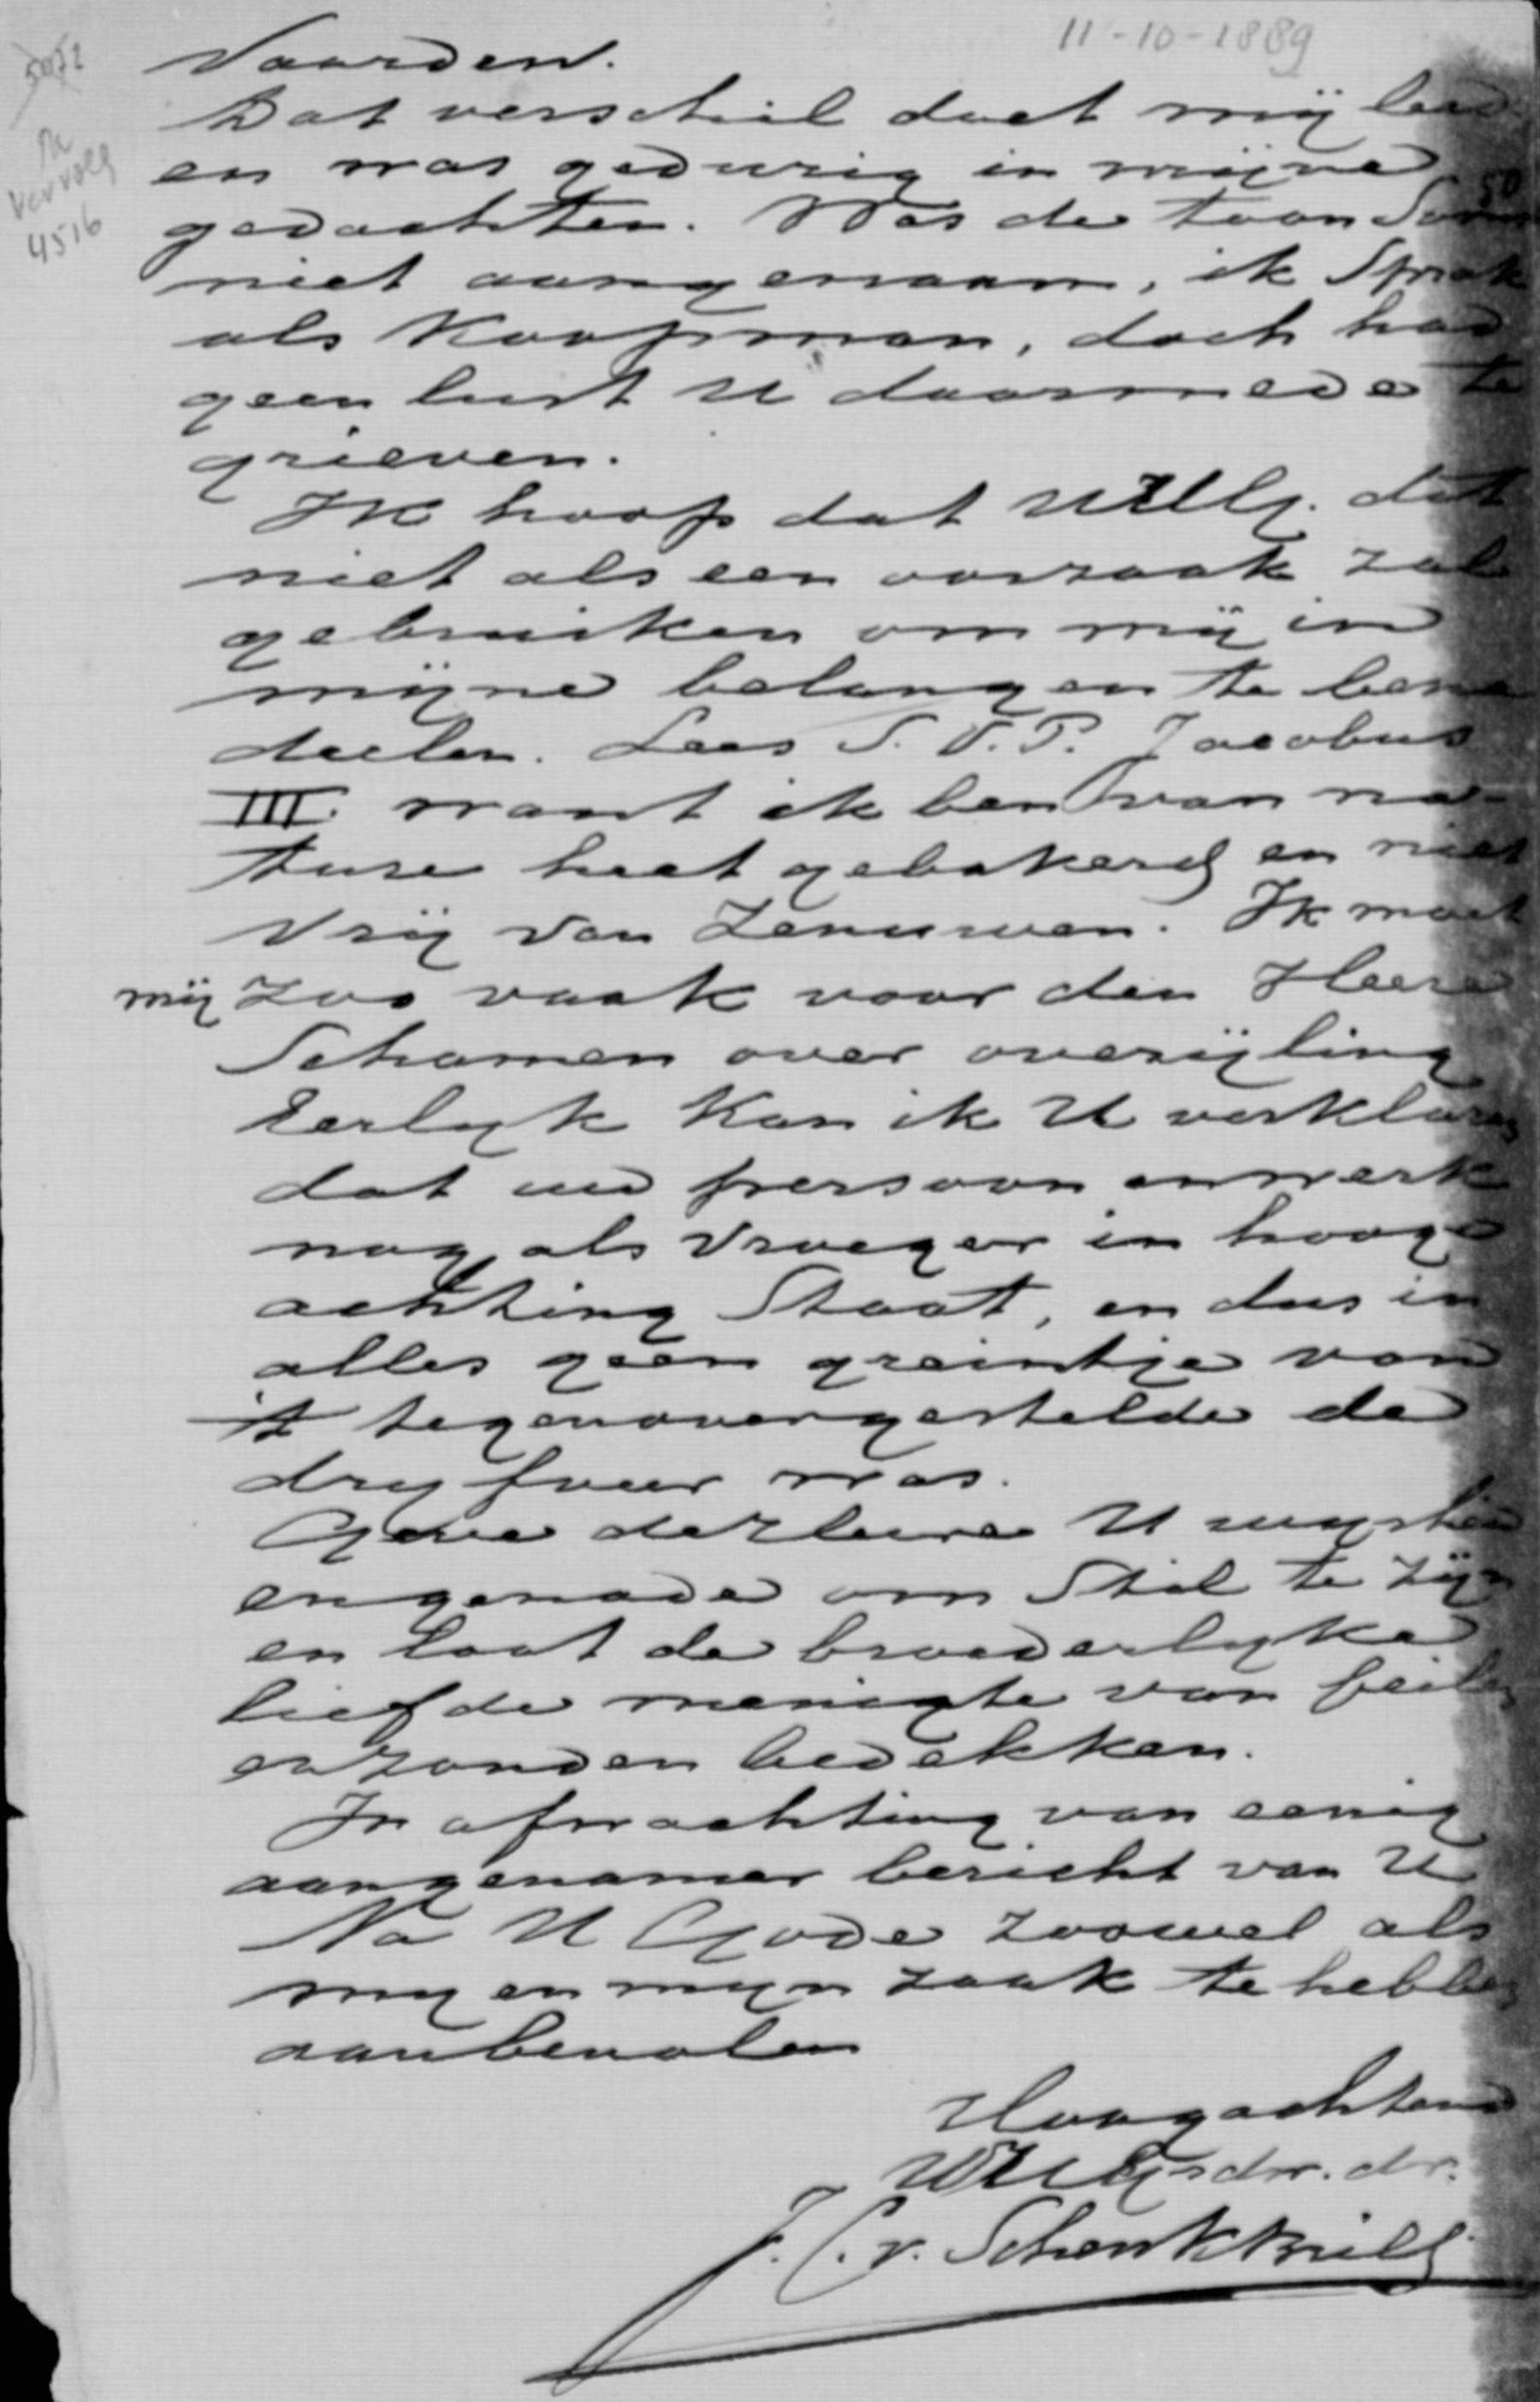 11-10-1889
5072
na
vervolg
4516
Vaarden.
Dat verschil doet mij leed
en was gedurig in mijne
gedachten. Was de toon soms
niet aangenaam, ik Sprak
als Koopman, doch had
geen lust U daarmede te
grieven.
Ik hoop dat UWelg. dat
niet als een oorzaak zal
gebruiken om mij in
mijne belangen te bena
deelen. Lees S.V.P. Jacobus
III. want ik ben van na-
ture heet gebakerd en niet
Vrij van Zenuwen. Ik moet
mij Zoo vaak voor den Heere
Schamen over overijling
Eerlyk Kan ik U verklaren
dat uw persoon en werk
nog als Vroeger in hooge
achting Staat, en dus in
alles geen greintje van
't tegenovergestelde de
dryfveer was.
Geve de Heere U wysheid
en genade om Stil te zijn
en laat de broederlyke
liefde menigte van feilen
en zonden bedekken.
In afwachting van eenig
aangenamer bericht van U
Na U Gode zoowel als
my en myn zaak te hebben
aanbevolen
Hoogachtend
UWelg. dw. dr.
J. C. v. Schenk Brill